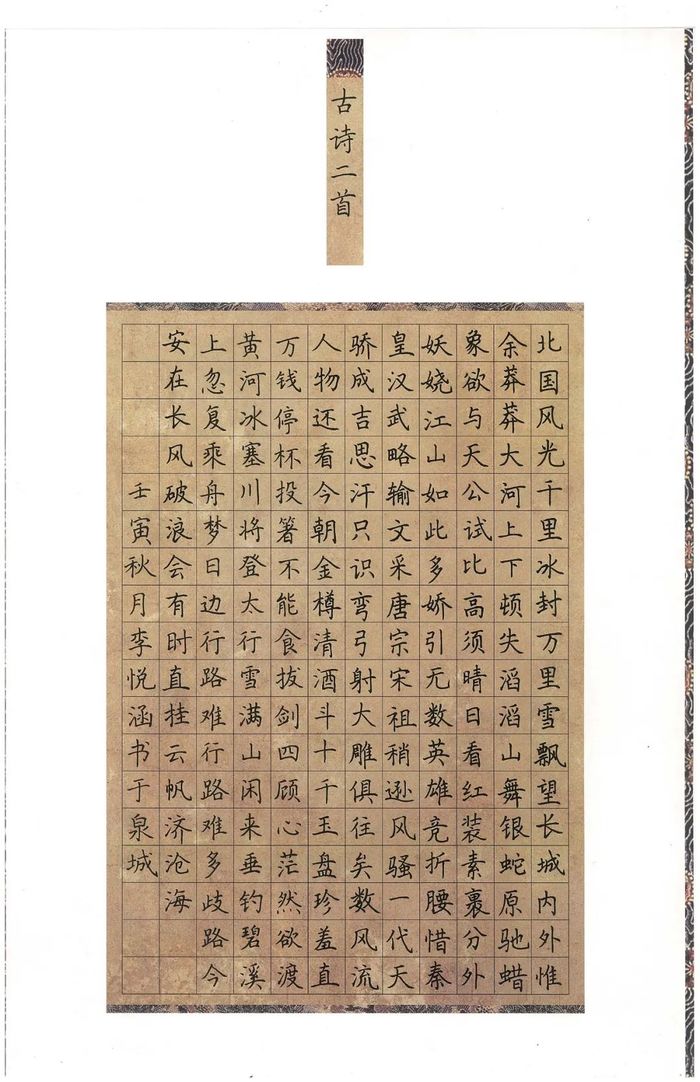 古诗二首
北国风光千里冰封万里雪飘望长城内外惟
余莽莽大河上下顿失滔滔山舞银蛇原驰蜡
象欲与天公试比高须晴日看红装素裹分外
妖娆江山如此多娇引无数英雄竞折腰惜秦
皇汉武略输文采唐宗宋祖稍逊风骚一代天
骄成吉思汗只识弯弓射大雕俱往矣数风流
人物还看今朝金樽清酒斗十千玉盘珍羞直
万钱停杯投箸不能食拔剑四顾心茫然欲渡
黄河冰塞川将登太行雪满山闲来垂钓碧溪
上忽复乘舟梦日边行路难行路难多歧路今
安在长风破浪会有时直挂云帆济沧海
壬寅秋月李悦涵书于泉城